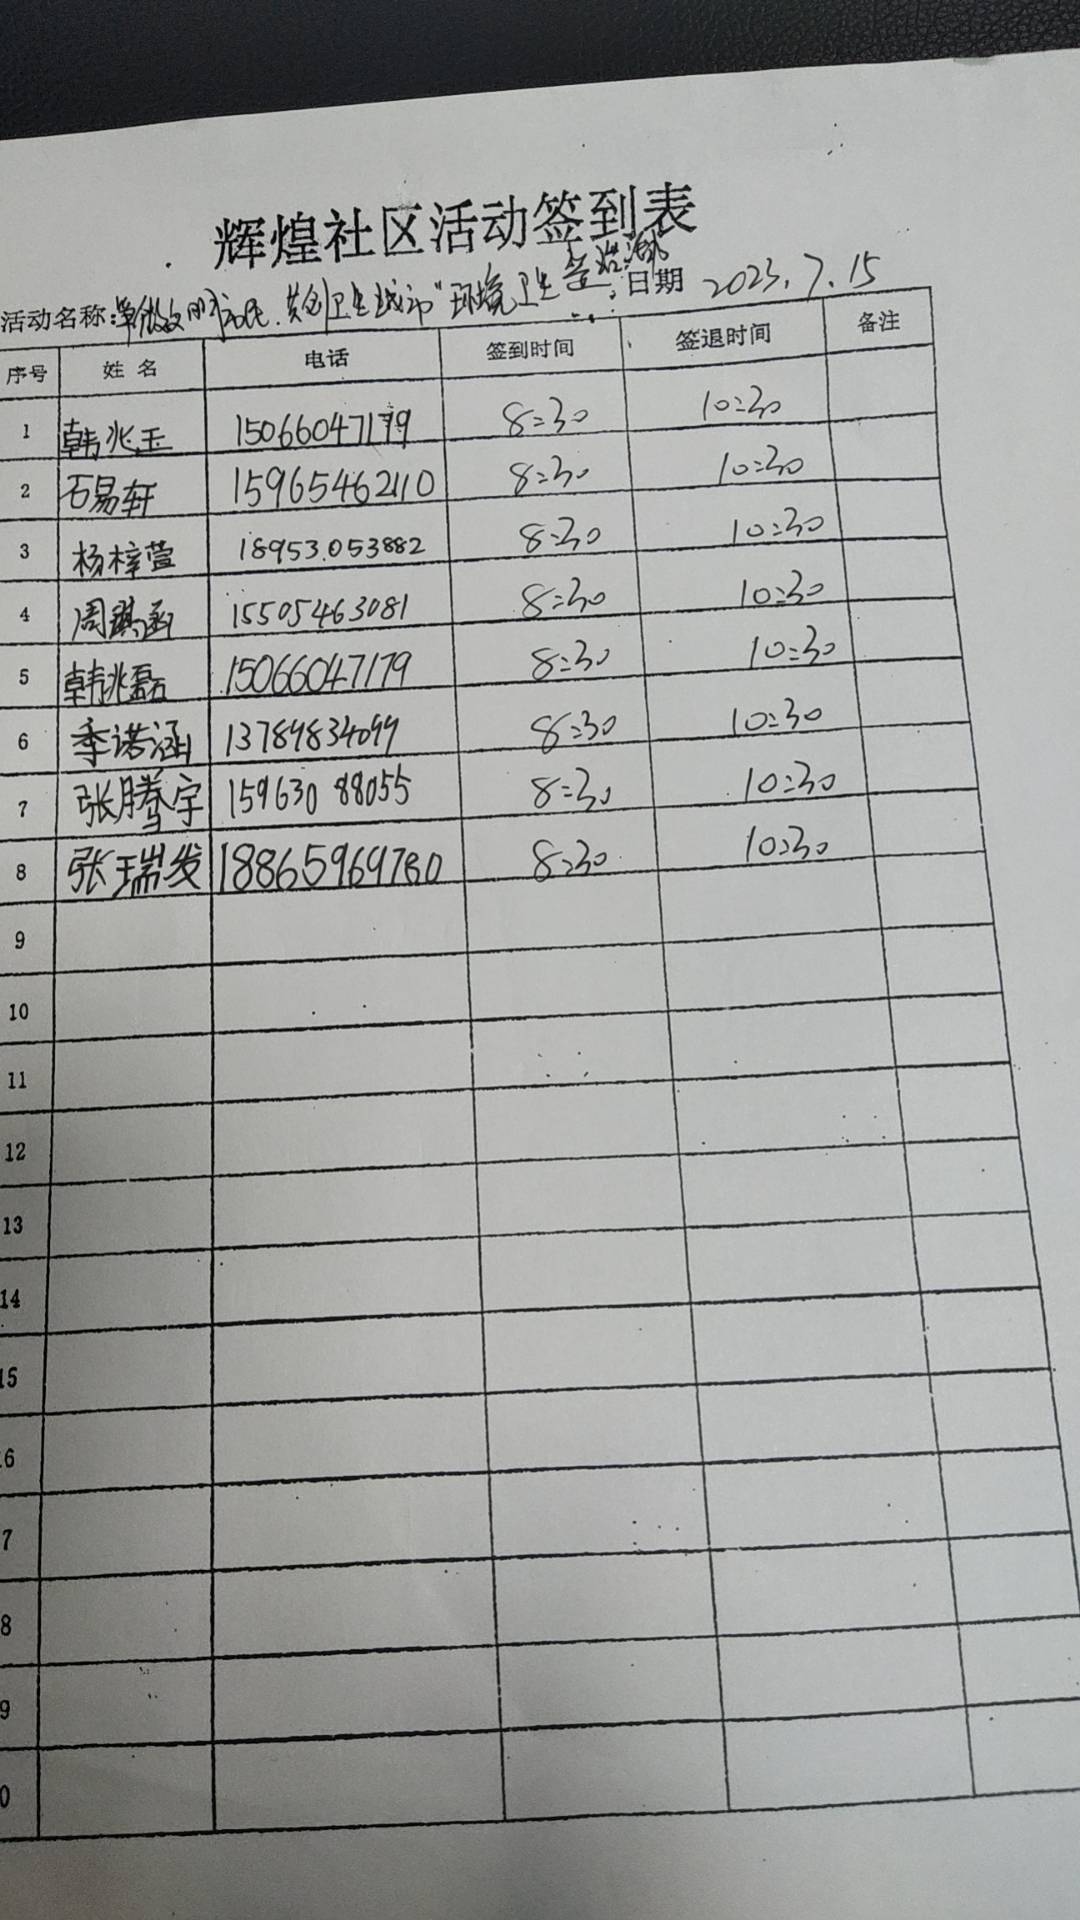 辉煌社区活动签到表
活动名称:争做文明市民.共创卫生城市"环境卫生整治活动 日期 2023.7.15
序号 姓名 电话 签到时间 签退时间 备注
1 韩兆玉 15066047179 8:30 10:30
2 石易轩 15965462110 8:30 10:30
3 杨梓萱 18953.053882 8:30 10:30
4 周琪函 15505463081 8:30 10:30
5 韩兆磊 15066047179 8:30 10:30
6 季诺涵 13789834099 8:30 10:30
7 张腾宇 15963088055 8:30 10:30
8 张瑞发 18865969780 8:30 10:30
9
10
11
12
13
14
15
6
7
8
9
0